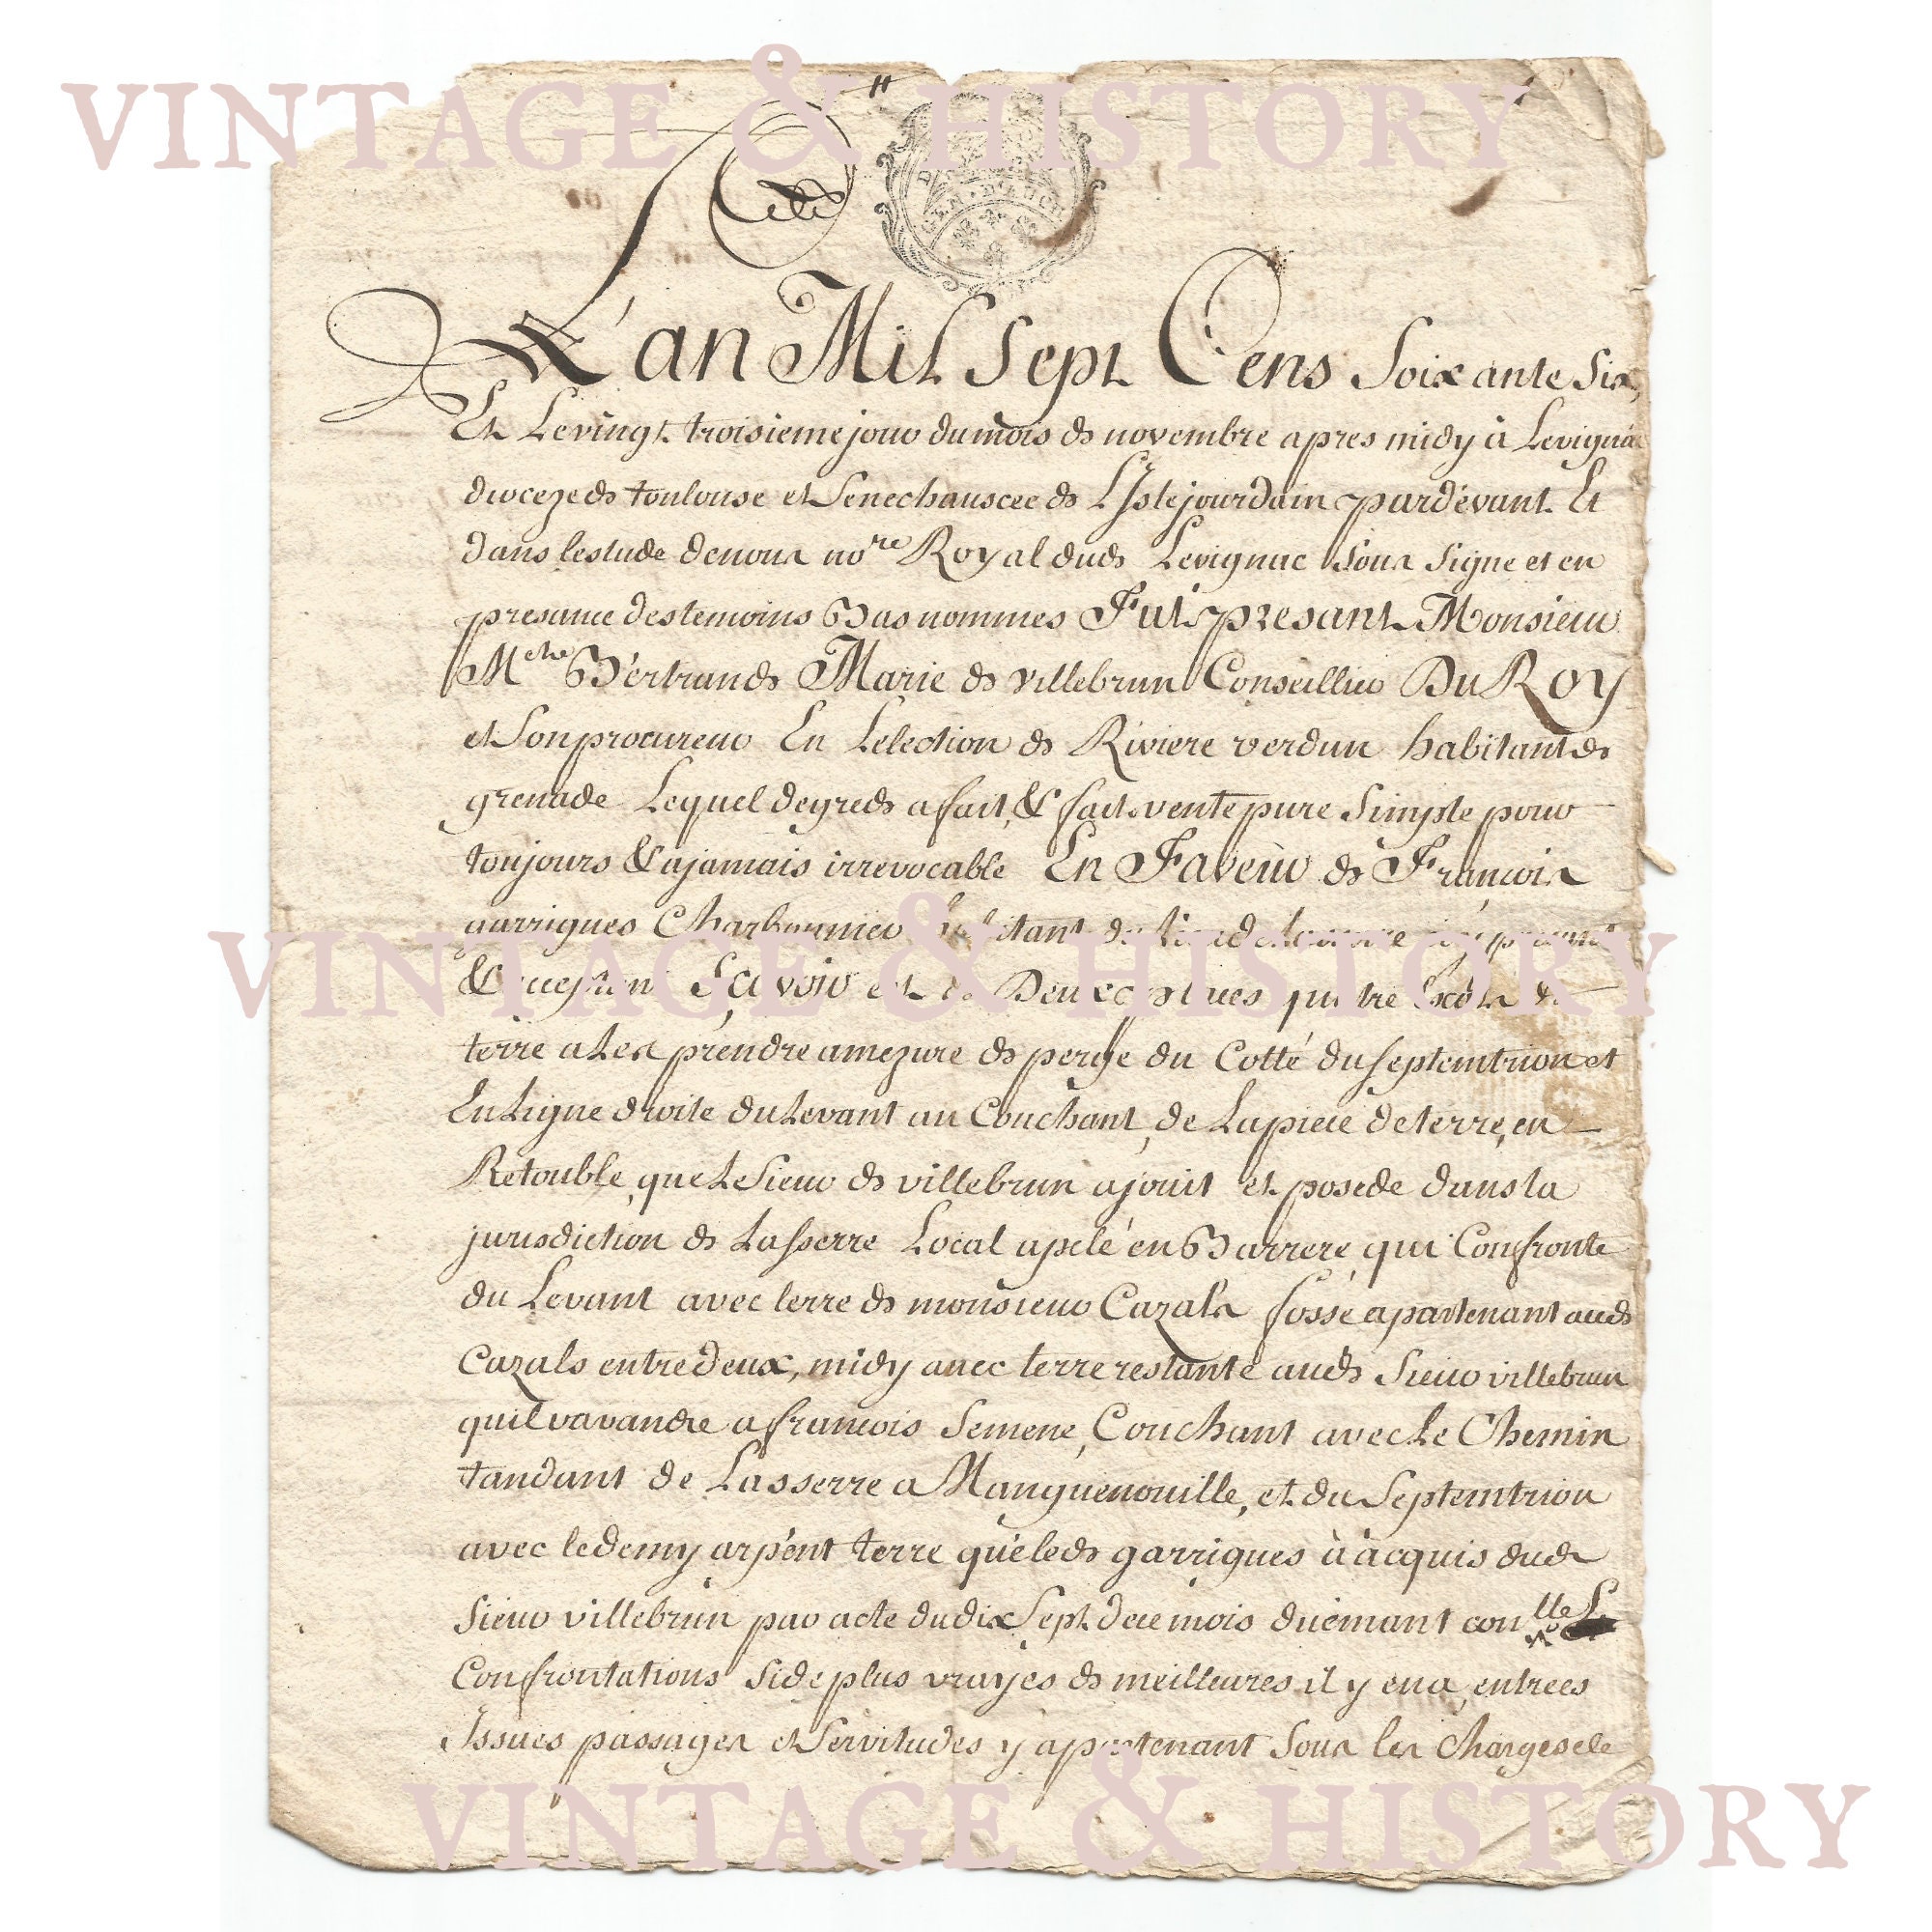 VINTAGE & HISTORY
GEN. D'AUCH
L'an Mil Sept Cens Soixante Six,
Et Le vingt troisieme jour du mois de novembre apres midy à Levignac
dioceze de toulouse et Senechauscee de L'Isle jourdain pardévant Et
dans lestude de nous nore Royal dud Levignac Sous Signe et en
presance des temoins Bas nommes Fut presant Monsieur
Me Bertrand Marie de villebrun Conseillier Du Roy
et Son procureur En Lelection de Riviere verdun habitant de
grenade Lequel de gred a fait, & fait vente pure Simple pour
toujours & ajamais irrevocable En Faveur de François
garrigues Charbonnier habitant du lieu de Lasserre icy present
VINTAGE & HISTORY
& acceptant Sçavoir est de Deux places quatre Escats de
terre a Les prendre amezure de perge du Cotté du Septemtrion et
En Ligne droite du Levant au Couchant, de La piece de terre, en
Retouble, que Le Sieur de villebrun ajouit et posede dans la
jurisdiction de Lasserre Local apelé en Barrere, qui Confronte
du Levant avec terre de monsieur Cazals fossé apartenant aud
Cazals entre deux, midy avec terre restante aud Sieur villebrun
quil va vandre a francois Semene, Couchant avec Le Chemin
tandant de Lasserre a Manguenouille, et du Septemtrion
avec le demy arpent terre que led garrigues à acquis dud
Sieur villebrun par acte du dix Sept de ce mois duemant conlle
Confrontations Si de plus vrayes de meilleures il y en a, entrees
Issues passages et Servitudes y apartenant Sous les Charges de
VINTAGE & HISTORY